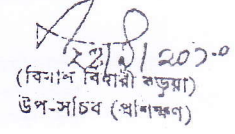 (বিমান বিহারী বড়ুয়া)
উপ-সচিব (প্রশিক্ষণ)